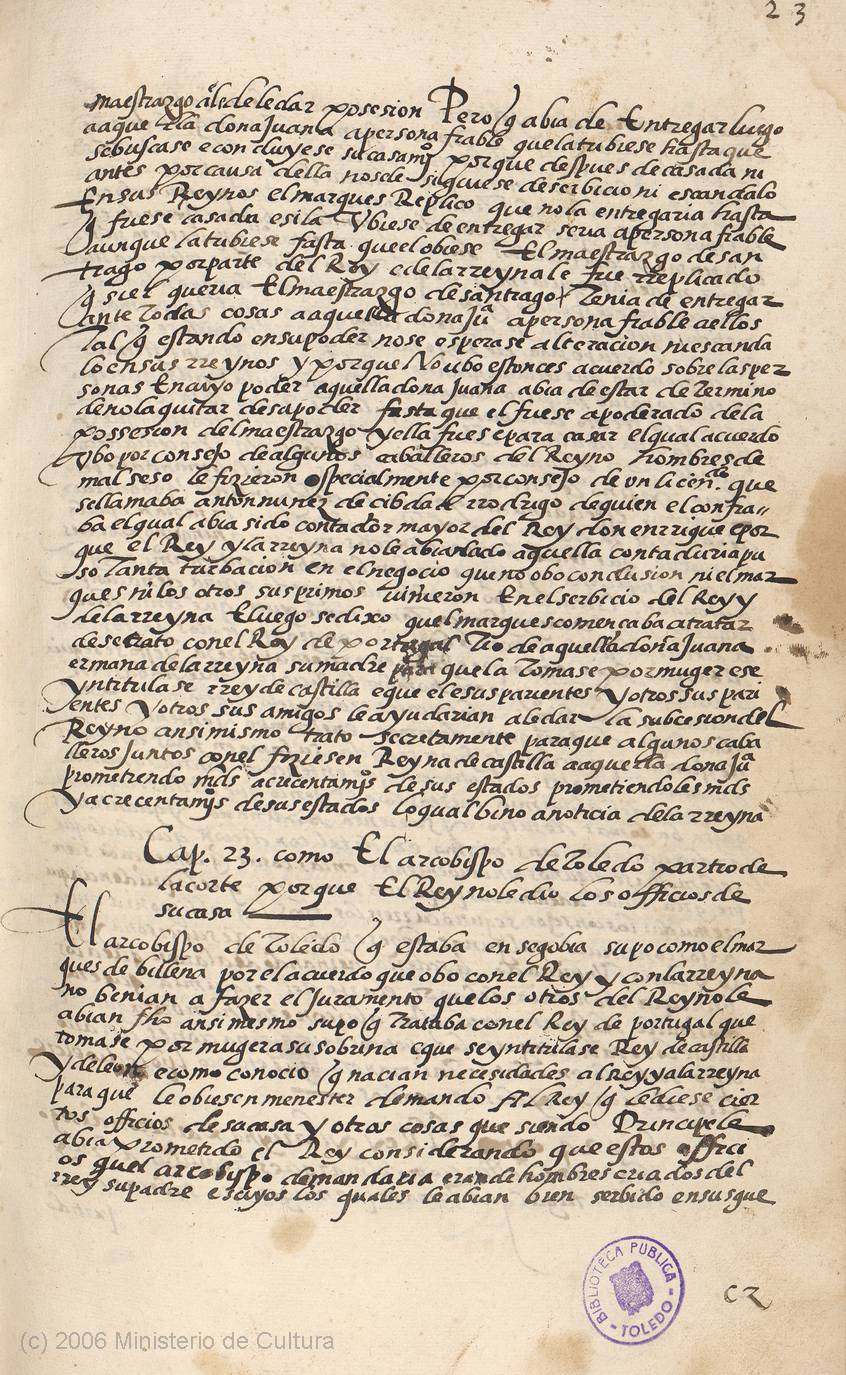 23
maestrazgo e le dar posesion Pero q abia de Entregar luego
aaquella dona Juana a persona fiable que la tubiese hasta que
se buscase e concluyese su casamio porque despues de casada ni
antes por causa della no se de siguiese deserbicio ni escandalo
En sus Reynos el marques Replico que no la entregaria hasta
q fuese casada e si la Vbiese de entregar seria a persona fiable
aunque la tubiese fasta que el obiese El maestrazgo de san
tiago por parte del Rey e de la rreyna le fue rreplicado
q si el queria El maestrazgo de santiago Tenia de entregar
ante Todas cosas a aquella dona Jua a persona fiable a ellos
Tal q estando en su poder no se esperase alteracion ni escanda
lo en sus rreynos y porque No ubo estonces acuerdo sobre las per
sonas En cuyo poder aquella dona Juana abia de estar determino
de no la quitar de sa poder fasta que el fuese apoderado de la
possesion del maestrazgo y ella fuese para casar el qual acuerdo
Vbo por consejo de algunos caballeros del Reyno hombres de
mal seso le fizieron especialmente por consejo de vn licendo que
se llamaba anton nunez de cibdad rrodrigo de quien el confia
ba el qual abia sido contador mayor del Rey don enrrique e por
que el Rey y la rreyna no le abian dado aquella contaduria pu
so Tanta turbacion en el negocio que no obo conclusion ni el mar
ques ni los otros sus primos vinieron En el serbicio del Rey y
de la rreyna E luego se dixo quel marques comencaba a tratar
de secreto con el Rey de portugal Tio de aquella doña Juana
ermana de la rreyna su madre para que la Tomase por muger e se
yntitulase rrey de castilla e que el e sus parientes y otros sus pari
entes y otros sus amigos le ayudarian a le dar la subcesion del
Reyno ansi mismo trato secretamente para que algunos caba
lleros Juntos con el fiziesen Reyna de castilla a aquella dona Jua
prometiendo mds acrecentamios de sus estados prometiendoles mds
y acrecentamios de sus estados lo qual bino a noticia de la rreyna
Cap. 23. como El arcobispo de Toledo partio de
la corte porque El Rey no le dio los officios de
su casa
El arcobispo de Toledo q estaba en segobia supo como el mar
ques de billena por el acuerdo que obo con el Rey y con la rreyna
no benian a fazer el Juramento que los otros del Reyno le
abian fho ansi mesmo supo q Trataba con el Rey de portugal que
tomase por muger a su sobrina e que se yntitulase Rey de castilla
y de leon e como conocio q nacian necesidades al Rey y a la rreyna
para que le obiesen menester demando Al Rey q le diese cier
tos officios de su casa y otras cosas que siendo Principe le
abia prometido el Rey considerando que estos offici
os quel arcobispo demandaria eran de hombres criados del
rrey su padre e suyos los quales le abian bien serbido en sus gue
BIBLIOTECA PÚBLICA
TOLEDO
(c) 2006 Ministerio de Cultura